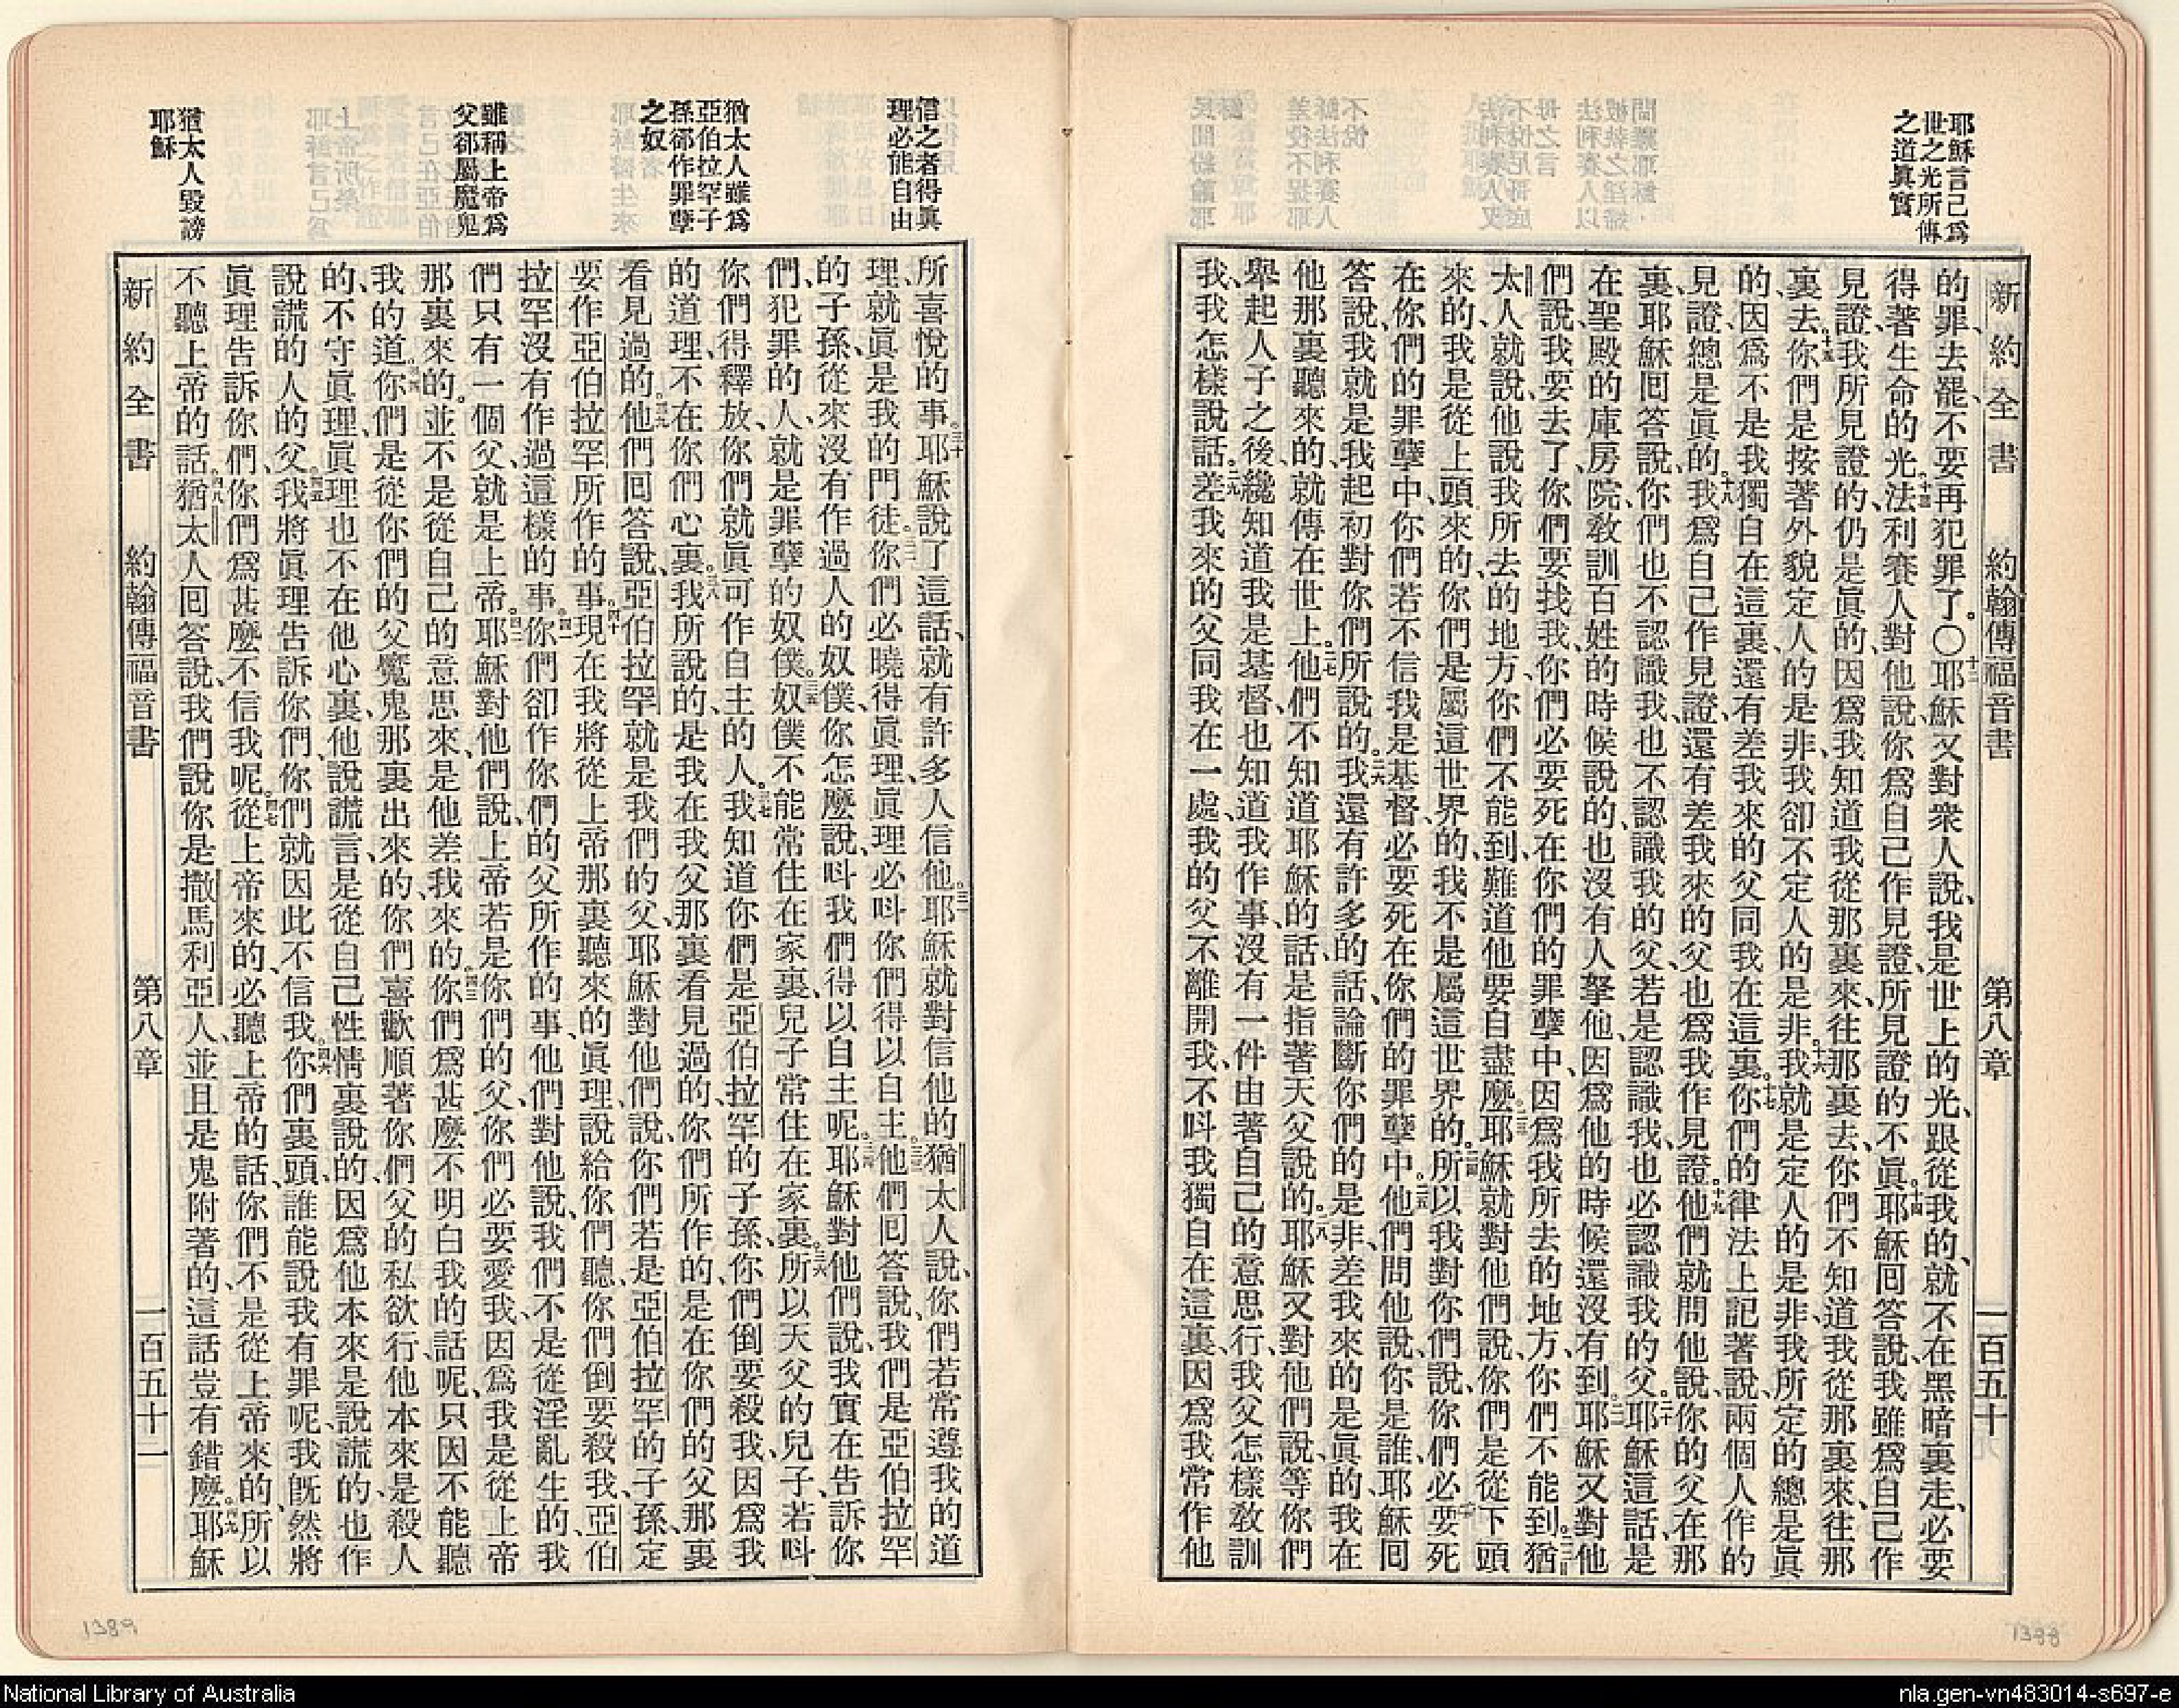 耶穌言己爲
世之光所傳
之道眞實
新約全書 約翰傳福音書 第八章 一百五十
的罪、去罷、不要再犯罪了。○耶穌又對衆人說、我是世上的光、跟從我的、就不在黑暗裏走、必要
得著生命的光。法利賽人對他說、你爲自己作見證、所見證的不眞。耶穌囘答說、我雖爲自己作
見證、我所見證的、仍是眞的、因爲我知道我從那裏來、往那裏去、你們不知道我從那裏來、往那
裏去。你們是按著外貌定人的是非、我卻不定人的是非。我就是定人的是非、我所定的總是眞
的、因爲不是我獨自在這裏、還有差我來的父同我在這裏。你們的律法上記著說、兩個人作的
見證、總是眞的。我爲自己作見證、還有差我來的父也爲我作見證。他們就問他說、你的父在那
裏、耶穌囘答說、你們也不認識我、也不認識我的父、若是認識我、也必認識我的父。耶穌這話是
在聖殿的庫房院敎訓百姓的時候說的、也沒有人拏他、因爲他的時候還沒有到。耶穌又對他
們說、我要去了、你們要找我、你們必要死在你們的罪孽中、因爲我所去的地方、你們不能到。猶
太人就說、他說我所去的地方你們不能到、難道他要自盡麼。耶穌就對他們說、你們是從下頭
來的、我是從上頭來的、你們是屬這世界的、我不是屬這世界的。所以我對你們說、你們必要死
在你們的罪孽中、你們若不信我是基督、必要死在你們的罪孽中。他們問他說、你是誰、耶穌囘
答說、我就是我起初對你們所說的。我還有許多的話、論斷你們的是非、差我來的是眞的、我在
他那裏聽來的、就傳在世上。他們不知道耶穌的話、是指著天父說的。耶穌又對他們說、等你們
舉起人子之後、纔知道我是基督、也知道我作事、沒有一件由著自己的意思行、我父怎樣敎訓
我、我怎樣說話。差我來的父同我在一處、我的父不離開我、不呌我獨自在這裏、因爲我常作他
信之者得眞
理必能自由
猶太人雖爲
亞伯拉罕子
孫郤作罪孽
之奴
雖稱上帝爲
父郤屬魔鬼
猶太人毀謗
耶穌
所喜悅的事。耶穌說了這話、就有許多人信他。耶穌就對信他的猶太人說、你們若常遵我的道
理、就眞是我的門徒。你們必曉得眞理、眞理必呌你們得以自主。他們囘答說、我們是亞伯拉罕
的子孫、從來沒有作過人的奴僕、你怎麼說、呌我們得以自主呢。耶穌對他們說、我實在告訴你
們、犯罪的人、就是罪孽的奴僕。奴僕不能常住在家裏、兒子常住在家裏。所以天父的兒子、若呌
你們得釋放、你們就眞可作自主的人。我知道你們是亞伯拉罕的子孫、你們倒要殺我、因爲我
的道理、不在你們心裏。我所說的、是我在我父那裏看見過的、你們所作的、是在你們的父那裏
看見過的。他們囘答說、亞伯拉罕就是我們的父、耶穌對他們說、你們若是亞伯拉罕的子孫、定
要作亞伯拉罕所作的事。現在我將從上帝那裏聽來的眞理說給你們聽、你們倒要殺我、亞伯
拉罕沒有作過這樣的事。你們卻作你們的父所作的事、他們對他說、我們不是從淫亂生的、我
們只有一個父、就是上帝。耶穌對他們說、上帝若是你們的父、你們必要愛我、因爲我是從上帝
那裏來的。並不是從自己的意思來、是他差我來的。你們爲甚麼不明白我的話呢、只因不能聽
我的道。你們是從你們的父魔鬼那裏出來的、你們喜歡順著你們父的私欲行、他本來是殺人
的、不守眞理、眞理也不在他心裏、他說謊言、是從自己性情裏說的、因爲他本來是說謊的、也作
說謊的人的父。我將眞理告訴你們、你們就因此不信我。你們裏頭誰能說我有罪呢、我旣然將
眞理告訴你們、你們爲甚麼不信我呢。從上帝來的、必聽上帝的話、你們不是從上帝來的、所以
不聽上帝的話。猶太人囘答說、我們說你是撒馬利亞人、並且是鬼附著的、這話豈有錯麼。耶穌
新約全書 約翰傳福音書 第八章 一百五十一
1389
1388
National Library of Australia
nla.gen-vn483014-s697-e